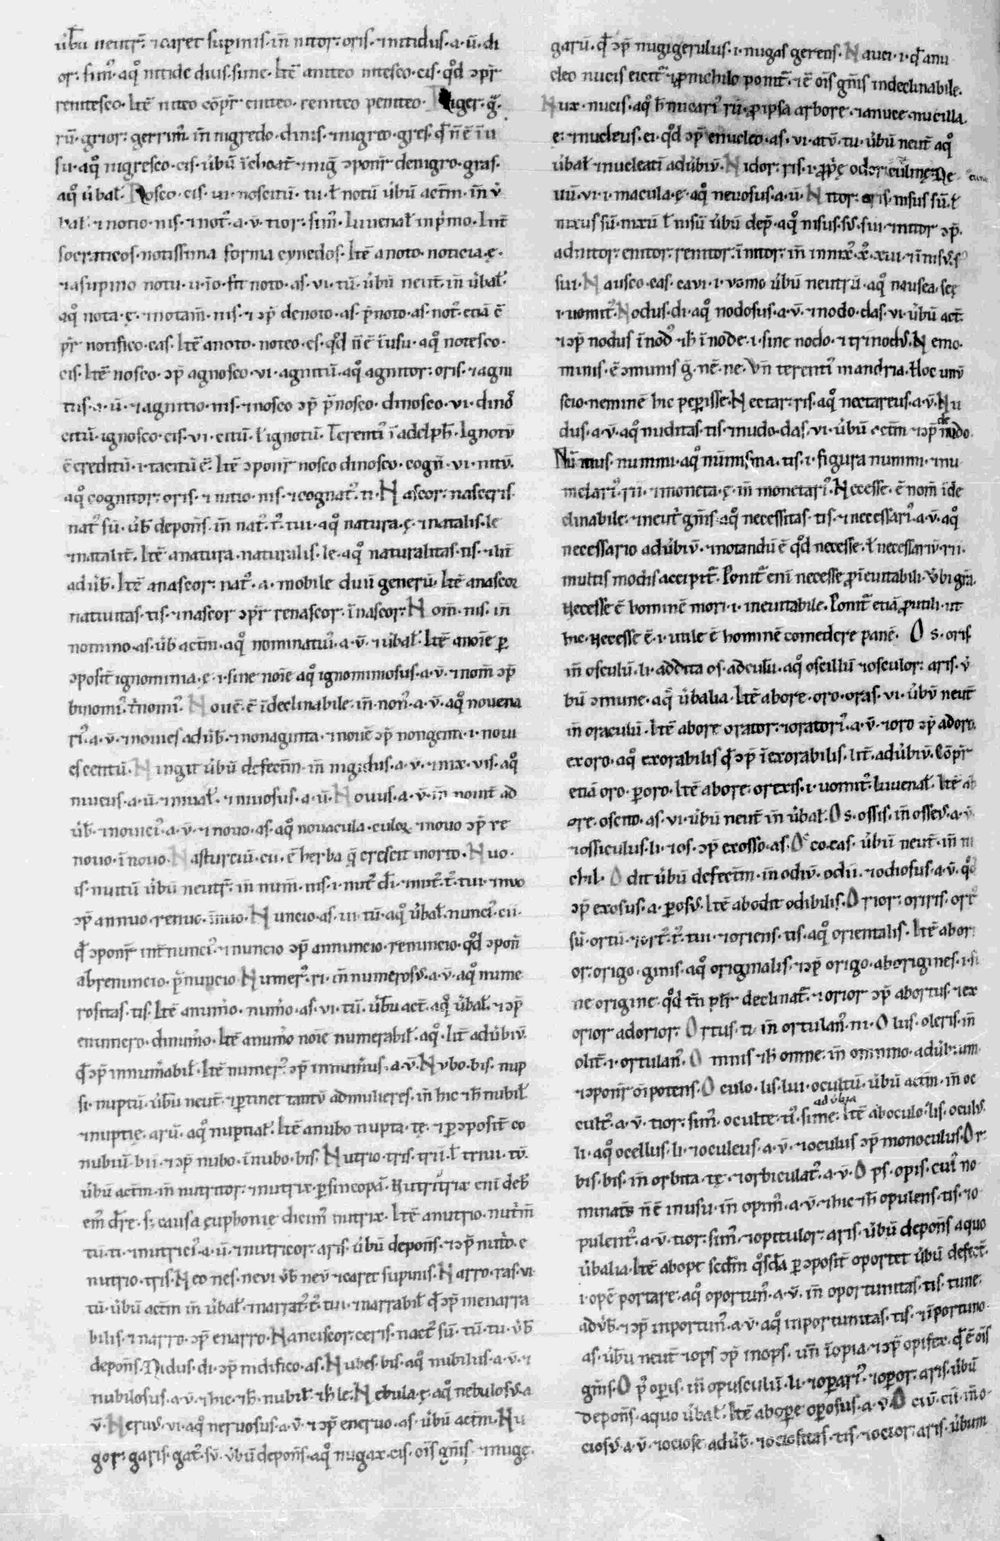 ūbū neutrū. ⁊ caret supinis. in̄ nitor. oris. ⁊ nitidus. a. ū. di
or. sim᷒. aq᷒ nitide diuis. sime. Itē a niteo nitesco. cis. qd̄ ɔpr̄
renitesco. Itē niteo cōpr̄ eniteo. reniteo peniteo. Niger. g᷒.
rū. grior. gerrim᷒. in̄ nigredo. dinis. ⁊ nigreo. gres.
su. aq᷒ nigresco. cis. ūbū īchoat̄. ⁊ niḡ ɔponr̄ denigro. gras.
aq᷒ ūbal̄. Nosco. cis. ui. noscitū. tu. ł notū ūbū actm̄. in̄ v̄
bal̄. ⁊ notio. nis. ⁊ not᷒. a. v̄. tior. sim᷒. Iuuenal̄ inpͥmo. Int̄
socraticos. notissima forma cynedos. Itē a noto. noticia. ę.
⁊ a supino notu. u. ī o. fit noto. as. ui. tū. ūbū neut̄. in̄ ūbal̄.
aq᷒ nota. ę. ⁊ notam̄. nis. ⁊ ɔp̄ denoto. as. p̄noto. as. not᷒. etiā ē
pr̄ notifico. cas. Itē a noto. noteo. es. qd̄ n̄ ē ī usu. aq᷒ notesco.
cis. Itē nosco. ɔp̄ agnosco. ui. agnitū. aq᷒ agnitor. oris. ⁊ agni
tus. a. ū. ⁊ agnitio. nis. ⁊ nosco ɔp̄ p̄nosco. dinosco. ui. dinō
citū. ignosco. cis. ui. citū. ł ignotū. Terenti᷒ ī adelph̄. Ignotū
ē creditū. i. tacitū ē. Itē ɔponr̄ nosco dinosco. cogn̄. ui. nitū.
aq᷒ cognitor. oris. ⁊ nitio. nis. ⁊ cognat᷒. ti. Nascor. nasceris.
nat᷒ sū. ūb̄ depon̄s. in̄ nat᷒. t᷒. tui. aq᷒ natura. ę. ⁊ natalis. le
⁊ natalit̄. Itē a natura. naturalis. le. aq᷒ naturalitas. tis. ⁊ lit̄
adūb̄. Itē a nascor. nat᷒. a. mobile duū generū. Itē a nascor
natiuitas. tis. ⁊ nascor ɔpr̄ renascor. īnascor. Nom̄. nis. in̄
nomino. as. ūb̄ actm̄. aq᷒ nominatiu᷒. a. v̄. ⁊ ūbal̄. Itē a noīe ꝑ
ɔposit̄ ignominia. ę. i. sine noīe aq᷒ ignominiosus. a. v̄. ⁊ nom̄ ɔp̄
binomi᷒. t͛nomi᷒. Nouē. ē īdeclinabile. in̄ non᷒. a. v̄. aq᷒ nouena
ri᷒. a. v̄. ⁊ nouies adūb̄. ⁊ nonaginta. ⁊ nouē ɔp̄ nongenti. i. noui
es centū. Ningit ūbū defectm̄. in̄ nigidus. a. v̄. ⁊ nix. uis. aq᷒
niueus. a. ū. ⁊ niual̄. ⁊ niuosus. a. ū. Nouus. a. v̄. in̄ nouit̄ ad
ūb̄. ⁊ nouici᷒. a. v̄. ⁊ nouo. as. aq᷒ nouacula. culę. ⁊ nouo ɔp̄ re
nouo. ī nouo. Nasturciū. cii. ē herba q̄ crescit in orto. Nuo.
is. nutū ūbū neutr̄. in̄ num̄. nis. i. nut᷒ di᷒. ⁊ nut᷒. t᷒. tui. ⁊ nuo
ɔp̄ annuo. renuo. īnuo. Nuncio. as. ui. tū. aq᷒ ūbal̄. nunci᷒. cii.
q̄ ɔponr̄ int͛nunci᷒. ⁊ nuncio ɔp̄ annuncio. renuncio. qd̄ ɔpon̄
abrenuncio. p̄nuncio. Numer᷒. ri. in̄ numerosv᷒. a. v̄. aq᷒ nume
rositas. tis. Itē a num͛o. num͛o. as. ui. tū. ūbū act̄. aq᷒ ūbal̄. ⁊ ɔp̄
enumero. dinum͛o. Itē a num͛o noīe numerabil̄. aq᷒. lit̄ adūbiū.
q̄ ɔp̄ innum͛abil̄. Itē numer᷒. ɔp̄ innum͛us. a. v̄. Nvbo. bis. nup
si. nuptū. ūbū neut̄. ⁊ ꝑtinet tantū ad mulieres. in̄ hic ⁊ h̄ nubil̄
⁊ nuptię. arū. aq᷒ nuptial̄. Itē a nubo nupta. tę. ⁊ ꝑ ɔposit̄ co
nubiū. bii. ⁊ ɔp̄ nubo. īnubo. bis. Nutrio. tris. triī. ł triui. tū.
ūbū actm̄. in̄ nutritor. ⁊ nutrix ꝑ sincopā. Nutritrix eni deb̄
em᷒ dr̄e. s. causa euphonię dicim᷒ nutrix. Itē a nutrio. nutm̄
tū. ti. ⁊ nutrici᷒. a. ū. ⁊ nutricor. aris. ūbū depon̄s. ⁊ ɔp̄ nutͥo. e
nutrio. tris. Neo nes. neui ūb̄ neū ⁊ caret supinis. Narro. ras. ui
tū. ūbū actm̄ in̄ ūbal̄. ⁊ narrat᷒. t᷒. tui. ⁊ narrabil̄ q̄ ɔp̄ inenarra
bilis. ⁊ narro. ɔp̄ enarro. Nanciscor. ceris. nact᷒ sū. tū. tu. ūb̄
depon̄s. Nidus. di. ɔp̄ nidifico. as. Nubes. bis. aq᷒ nubilus. a. v̄. ⁊
nubilosus. a. v̄. ⁊ hic. ⁊ h̄. nubil̄. ⁊ h̄ le. Nebula. ę. aq᷒ nebulosv᷒. a
v̄. Neruv᷒. ui. aq᷒ neruosus. a. v̄. ⁊ ɔp̄ eneruo. as. ūbū actm̄. Nu
gor. garis. gat᷒. sū. ūbū depon̄s. aq᷒ nugax. cis. oīs gn̄is. ⁊ nugę.
garū. q̄ ɔp̄ nugigerulus. i. nugas gerens. Nauci. i. q̄ a nu
cleo nucis eicit᷒ ⁊ ꝓ nichilo ponit᷒. ⁊ ē oīs gn̄is indeclinabile.
Nux. nucis. aq᷒ h̄ nucari᷒ rii. ꝓ ipsa arbore. ⁊ a nuce. nucilla.
e. ⁊ nucleus. ei. qd̄ ɔp̄ enucleo. as. ui. atū. tu. ūbū neut̄ aq᷒
ūbal̄ ⁊ nucleati adūbiū. Nidor. ris. i. ꝓpͥe odor culinę. Ne
uū. ui. i. macula. ę. aq᷒ neuosus. a. ū. Nitor. eris. nisus sū. ł
nixus sū. nixū ł nisū ūbū dep̄. aq᷒ nisus. sū. sui. ⁊ nitor ɔp̄.
adnitor. enitor. renitor. īnitor. in̄ innix᷒. x᷒. xui. ⁊ īnisv᷒. s᷒
sui. Nauseo. eas. eaui. i. uomo ūbū neutrū. aq᷒ nausea. seę
i. uomit᷒. Nodus. di. aq᷒ nodosus. a. v̄. ⁊ nodo. das. ui. ūbū act̄.
⁊ ɔp̄ nodus īnod᷒ ⁊ h̄ īnode. i. sine nodo. ⁊ trinodv᷒. Nemo.
minis. ē ɔmunis g̊. nē. ne. Vn̄ terenti᷒ in andria. Hoc unū
scio. neminē hic peperisse. Nectar. ris. aq᷒ nectareus. a. v̄. Nu
dus. a. v̄. aq᷒ nuditas. tis. ⁊ nudo. das. ui. ūbū actm̄ ⁊ ɔp̄ denudo.
Nūmus. nummi. aq᷒ nūmisma. tis. i. figura nummi. ⁊ nu
melari᷒. rii. ⁊ moneta. ę. in̄ monetari᷒. Necesse. ē nom̄ īde
clinabile. ⁊ neut͛ gn̄is. aq᷒ necessitas. tis. ⁊ necessari᷒. a. v̄. aq᷒
necessario adūbiū. ⁊ notandū ē qd̄ necesse. ł necessariū. rii.
multis modis accipit᷒. Ponit᷒ eni necesse ꝓ ineuitabili. ūbi gr̄a.
Necesse ē hominē mori. i. ineuitabile. Ponit᷒ etiā ꝓ utili. ut
hic. Necesse ē. i. utile ē hominē comedere panē. Os. oris
in̄ osculū. li. addita os. ad culū. aq᷒ oscillū ⁊ osculor. aris. v̄
bū ɔmune. aq᷒ ūbalia. Itē ab ore. oro. oras. ui. ūbū neut̄
in̄ oraculū. Itē ab ore orator. ⁊ oratori᷒. a. v̄. ⁊ oro ɔp̄ adoro.
exoro. aq᷒ exorabilis q̄ ɔp̄ īexorabilis. lit̄. adūbiū. Cōpr̄
etiā oro. ꝑoro. Itē ab ore. orexis. i. uomit᷒. Iuuenal̄. Itē ab
ore. oscito. as. ui. ūbū neut̄ in̄ ūbal̄. Os. ossis. in̄ ossev᷒. a. v̄
⁊ ossiculus. li. ⁊ os. ɔp̄ exosso. as. Occo. cas. ūbū neut̄. in̄ ni
chil. Odit ūbū defectm̄. in odiū. odii. ⁊ odiosus. a. v̄. q᷒
ɔp̄ exosus. a. ꝑosv᷒. Itē ab odit odibilis. Orior. oriris. ort᷒
sū. ortū. ⁊ ort᷒. t᷒. tui. ⁊ oriens. tis. aq᷒ orientalis. Itē ab ori
or. origo. ginis. aq᷒ originalis. ⁊ ɔp̄ origo. aborigines. i. si
ne origine. qd̄ tn̄ plr̄ declinat᷒. ⁊ orior ɔp̄ abortus. ⁊ ex
orior adorior. Ortus. ti. in̄ ortulan᷒. ni. Olus. oleris. in̄
olit᷒. i. ortulan᷒. Omnis ⁊ h̄ omne. in̄ omnino. adūbium
⁊ ɔponr̄ oīpotens. Oculo. lis. lui. ocultū. ūbū actm̄. in̄ oc
cult᷒. a. v̄. tior. sim᷒. oculte. ti᷒. sime. adūbia Itē ab oculo. lis. oculv᷒.
li. aq᷒ ocellus. li. ⁊ oculeus. a. v̄. ⁊ oculus ɔp̄ monoculus. Or
bis. bis. in̄ orbita. tę. ⁊ orbiculat᷒. a. v̄. Ops. opis. cui᷒ no
minat᷒ n̄ ē in usu. in̄ opim᷒. a. v̄. ⁊ hic ⁊ h̄ opulens. tis. ⁊ o
pulent᷒. a. v̄. tior. sim᷒. ⁊ opitulor. aris. ūbū depon̄s aquo
ūbalia. Itē ab ope scdm̄ q᷒sdā ꝑ ɔposit̄ oportet ūbū defect̄.
i. opē portare. aq᷒ oportun᷒. a. v̄. in̄ oportunitas. tis. tune.
adūb̄. ⁊ ɔp̄ inportun᷒. a. v̄. aq᷒ inportunitas. tis. ⁊ īportuno
as. ūbū neut̄ ⁊ ops ɔp̄ inops. un̄ īopia. ⁊ ɔp̄ opifex. q̄ ē oīs
gn̄is. Op᷒ oꝑis. in̄ opusculū. li. ⁊ oꝑari᷒. ⁊ oꝑor. aris. ūbū
depon̄s. aquo ūbal̄. Itē ab oꝑe oꝑosus. a. v̄. Ociū. cii. in̄ o
ciosv᷒. a. v̄. ⁊ ociose. adūb̄. ⁊ ociositas. tis. ⁊ ocior. aris. ūbum